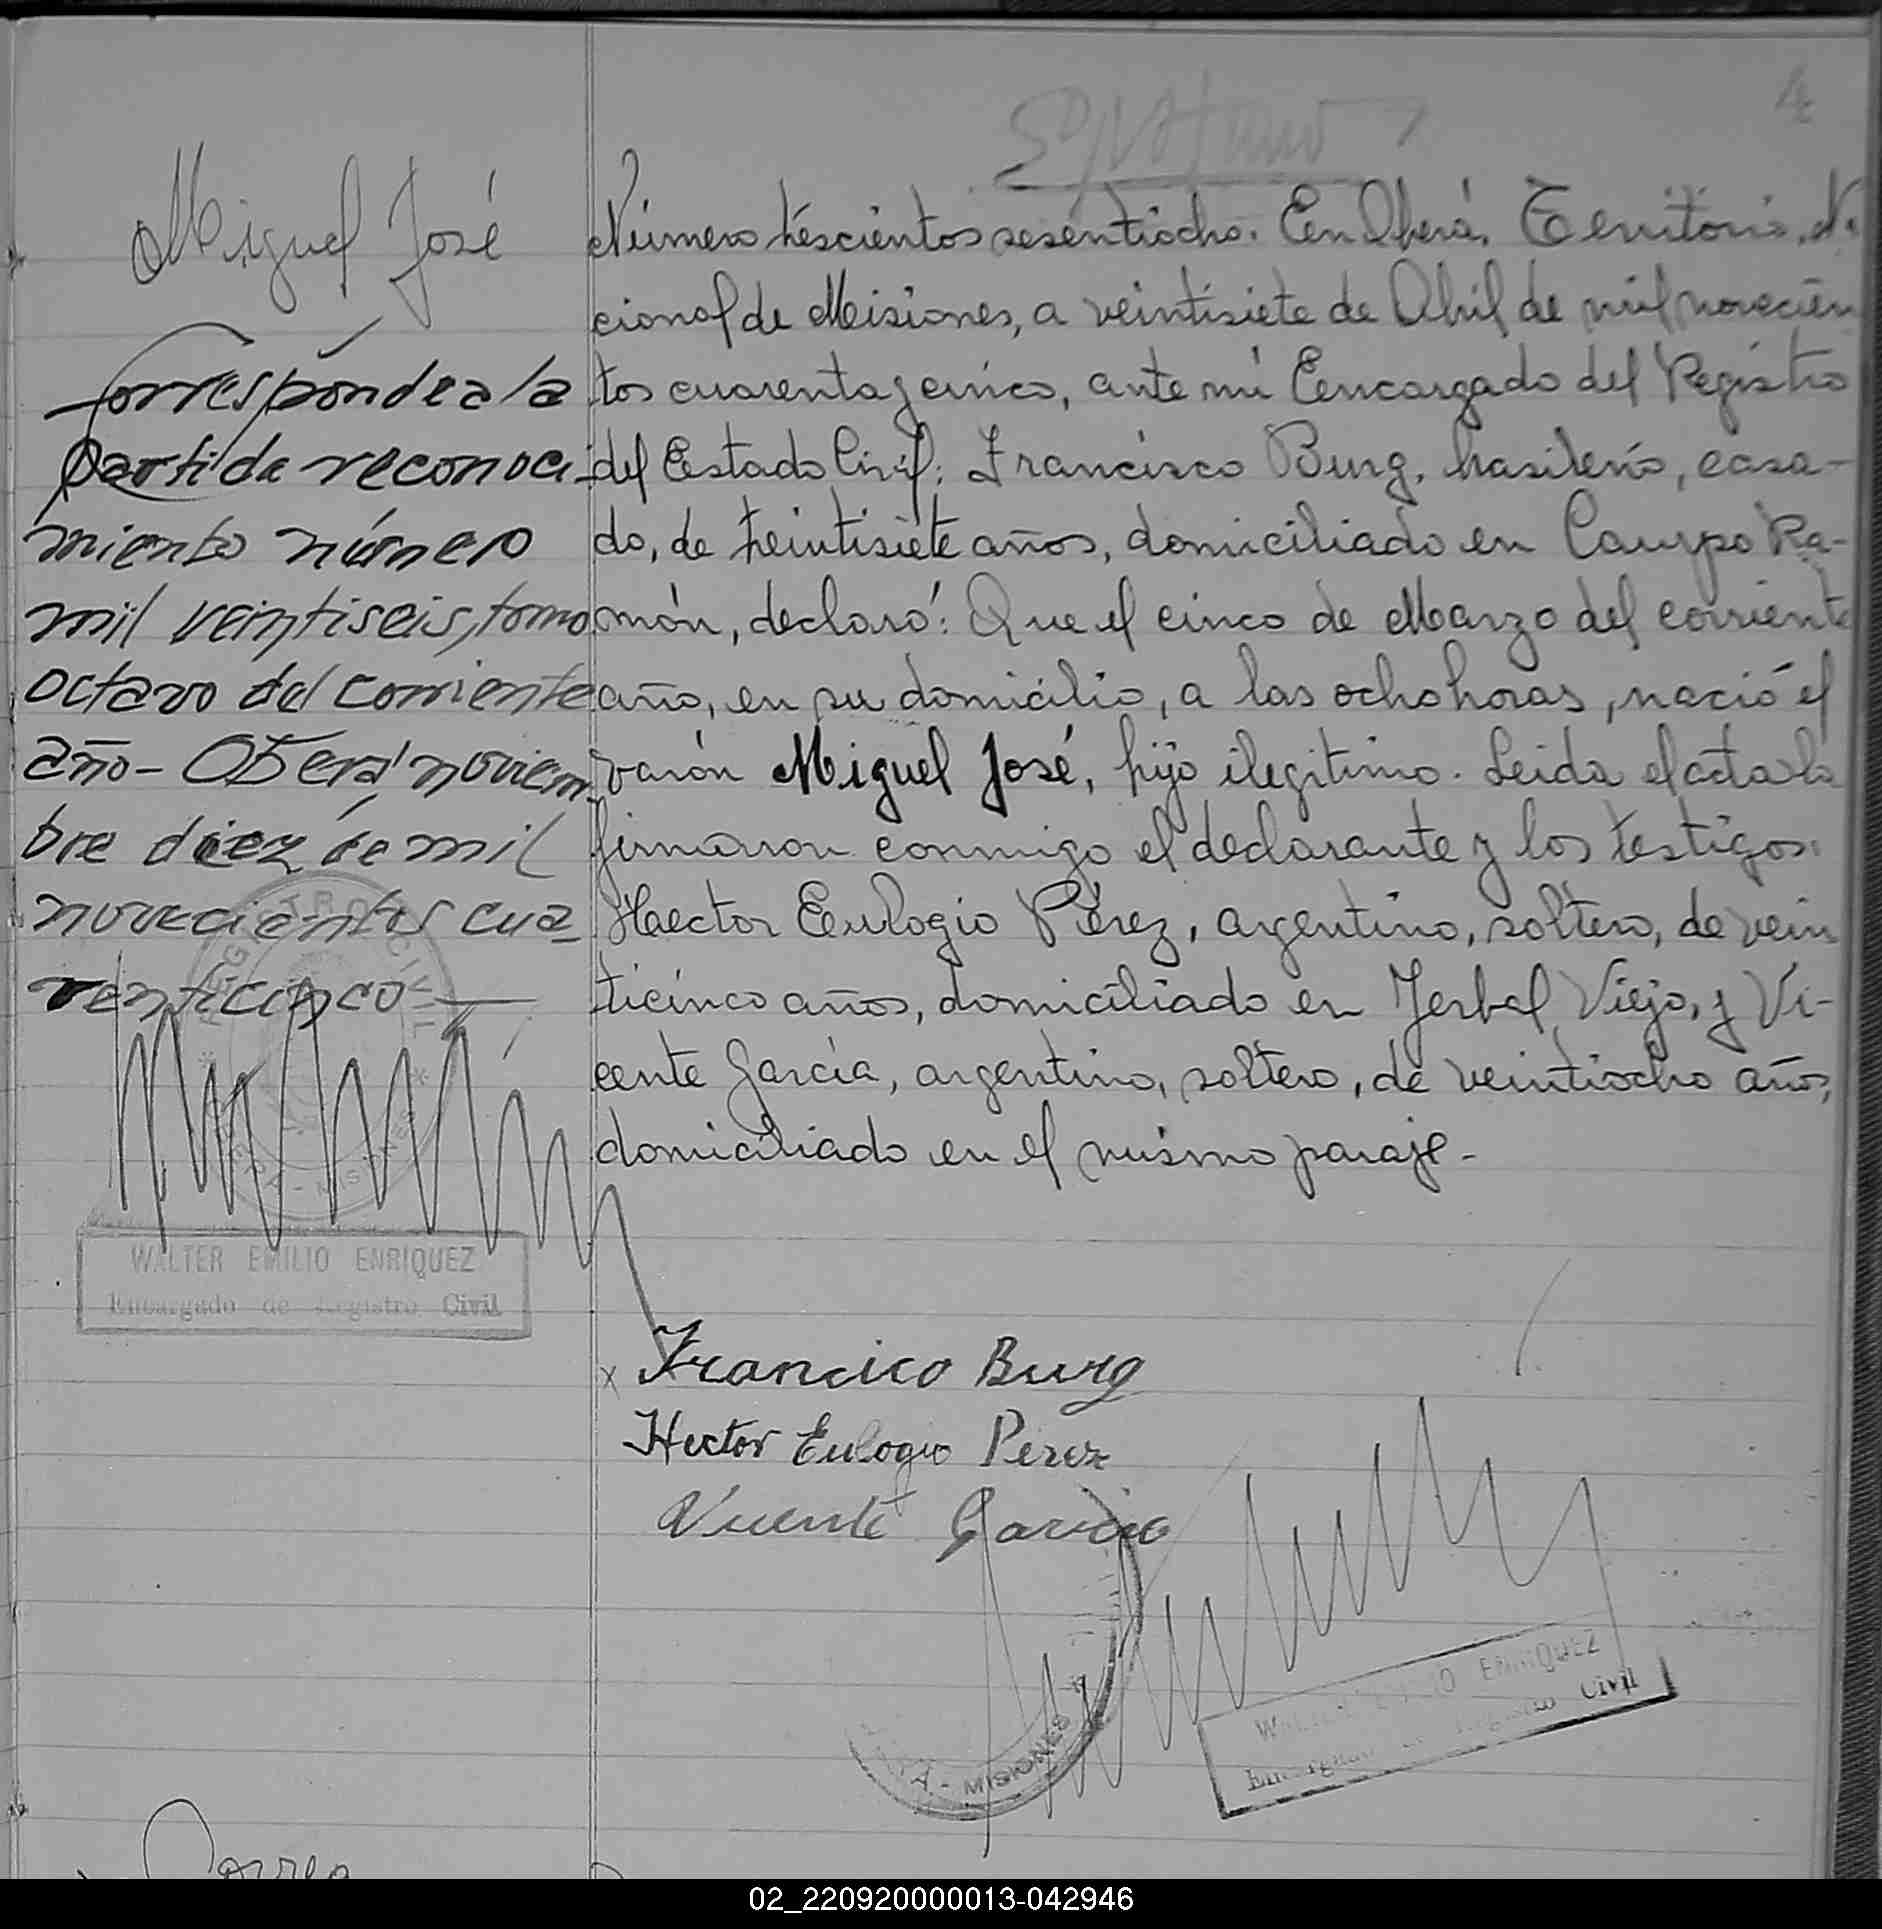 4
Miguel José
Corresponde a la
partida reconoci-
miento número
mil veintiseis, tomo
octavo del corriente
año - Oberá noviem-
bre diez de mil
novecientos cua
renticinco —
REGISTRO CIVIL
OBERÁ - MISIONES
WALTER EMILIO ENRIQUEZ
Encargado de Registro Civil
Número trescientos sesentiocho. En Oberá, Territorio Na
cional de Misiones, a veintisiete de Abril de mil novecien
tos cuarenta y cinco, ante mí Encargado del Registro
del Estado Civil: Francisco Burg, brasileño, casa-
do, de treintisiete años, domiciliado en Campo Ra-
món, declaró: Que el cinco de Marzo del corriente
año, en su domicilio, a las ocho horas, nació el
varón Miguel José, hijo ilegítimo. Leida el acta la
firmaron conmigo el declarante y los testigos:
Hector Eulogio Pérez, argentino, soltero, de vein
ticinco años, domiciliado en Yerbal Viejo, y Vi-
cente García, argentino, soltero, de veintiocho años,
domiciliado en el mismo paraje -
x Francisco Burg
Hector Eulogio Perez
Vicente Garcia
MISIONES
ENRIQUEZ
Civil
Correo
02_220920000013-042946